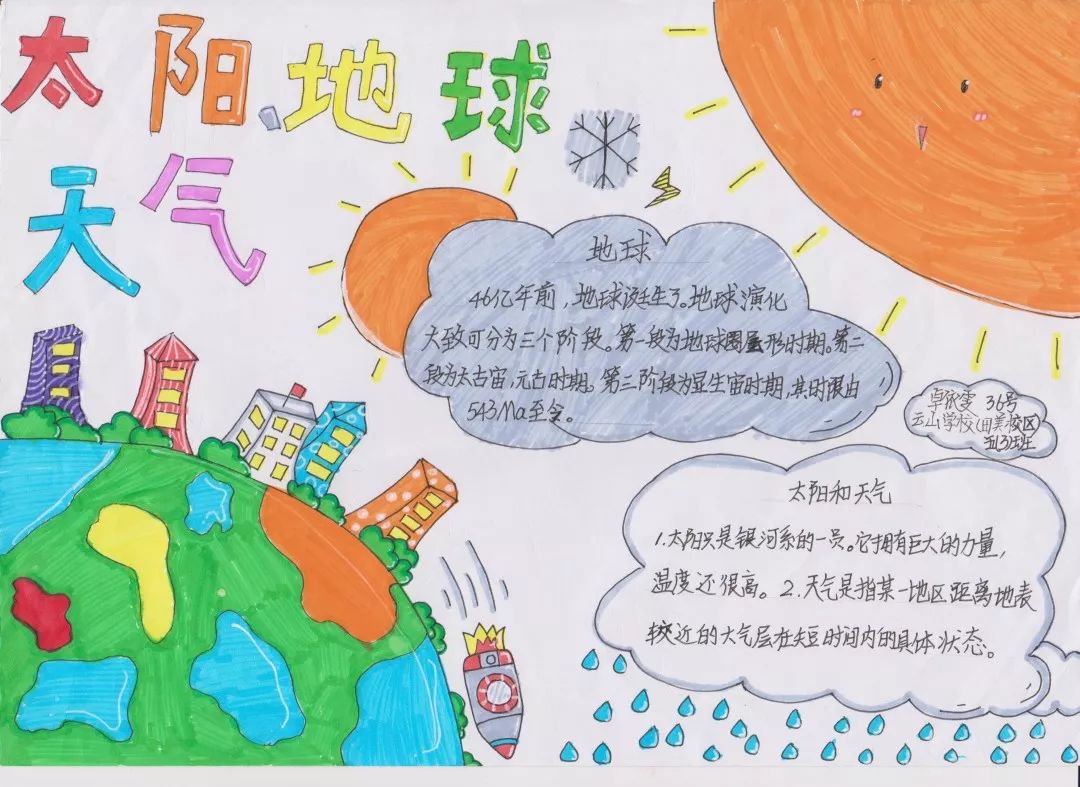 太阳、地球
天气
地球
46亿年前,地球诞生了。地球演化
大致可分为三个阶段。第一段为地球圈形时期。第二
段为太古宙,元古时期。第三阶段为显生宙时期,其时限由
543Ma至今。
36号
云山学校(田美校区)
五(3)班
太阳和天气
1.太阳只是银河系的一员。它拥有巨大的力量,
温度还很高。2.天气是指某一地区距离地表
较近的大气层在短时间内的具体状态。